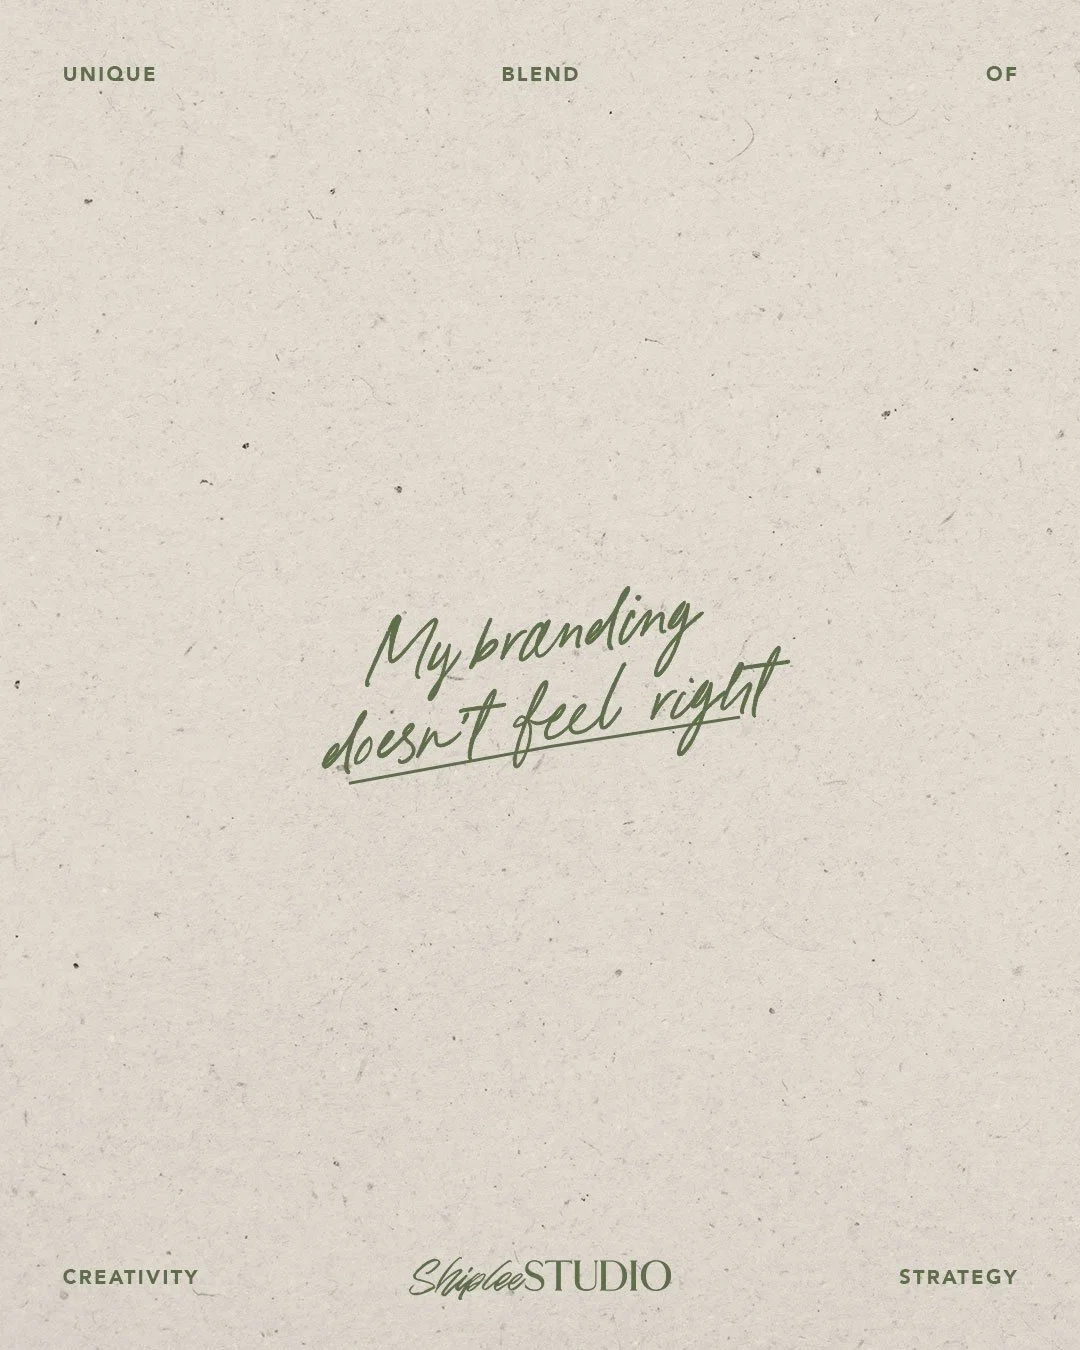 UNIQUE BLEND OF
My branding
doesn't feel right
CREATIVITY ShipleeSTUDIO STRATEGY